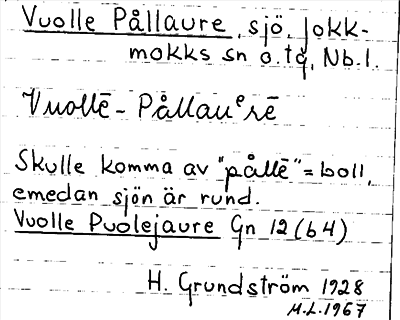 Vuolle Pållaure, sjö, Jokk-
mokks sn o. tg, Nb. l.
Vuollē-Pållauᵉrē
Skulle komma av "pållē" = boll,
emedan sjön är rund.
Vuolle Puolejaure Gn 12 (b4)
H. Grundström 1928
M.L. 1967